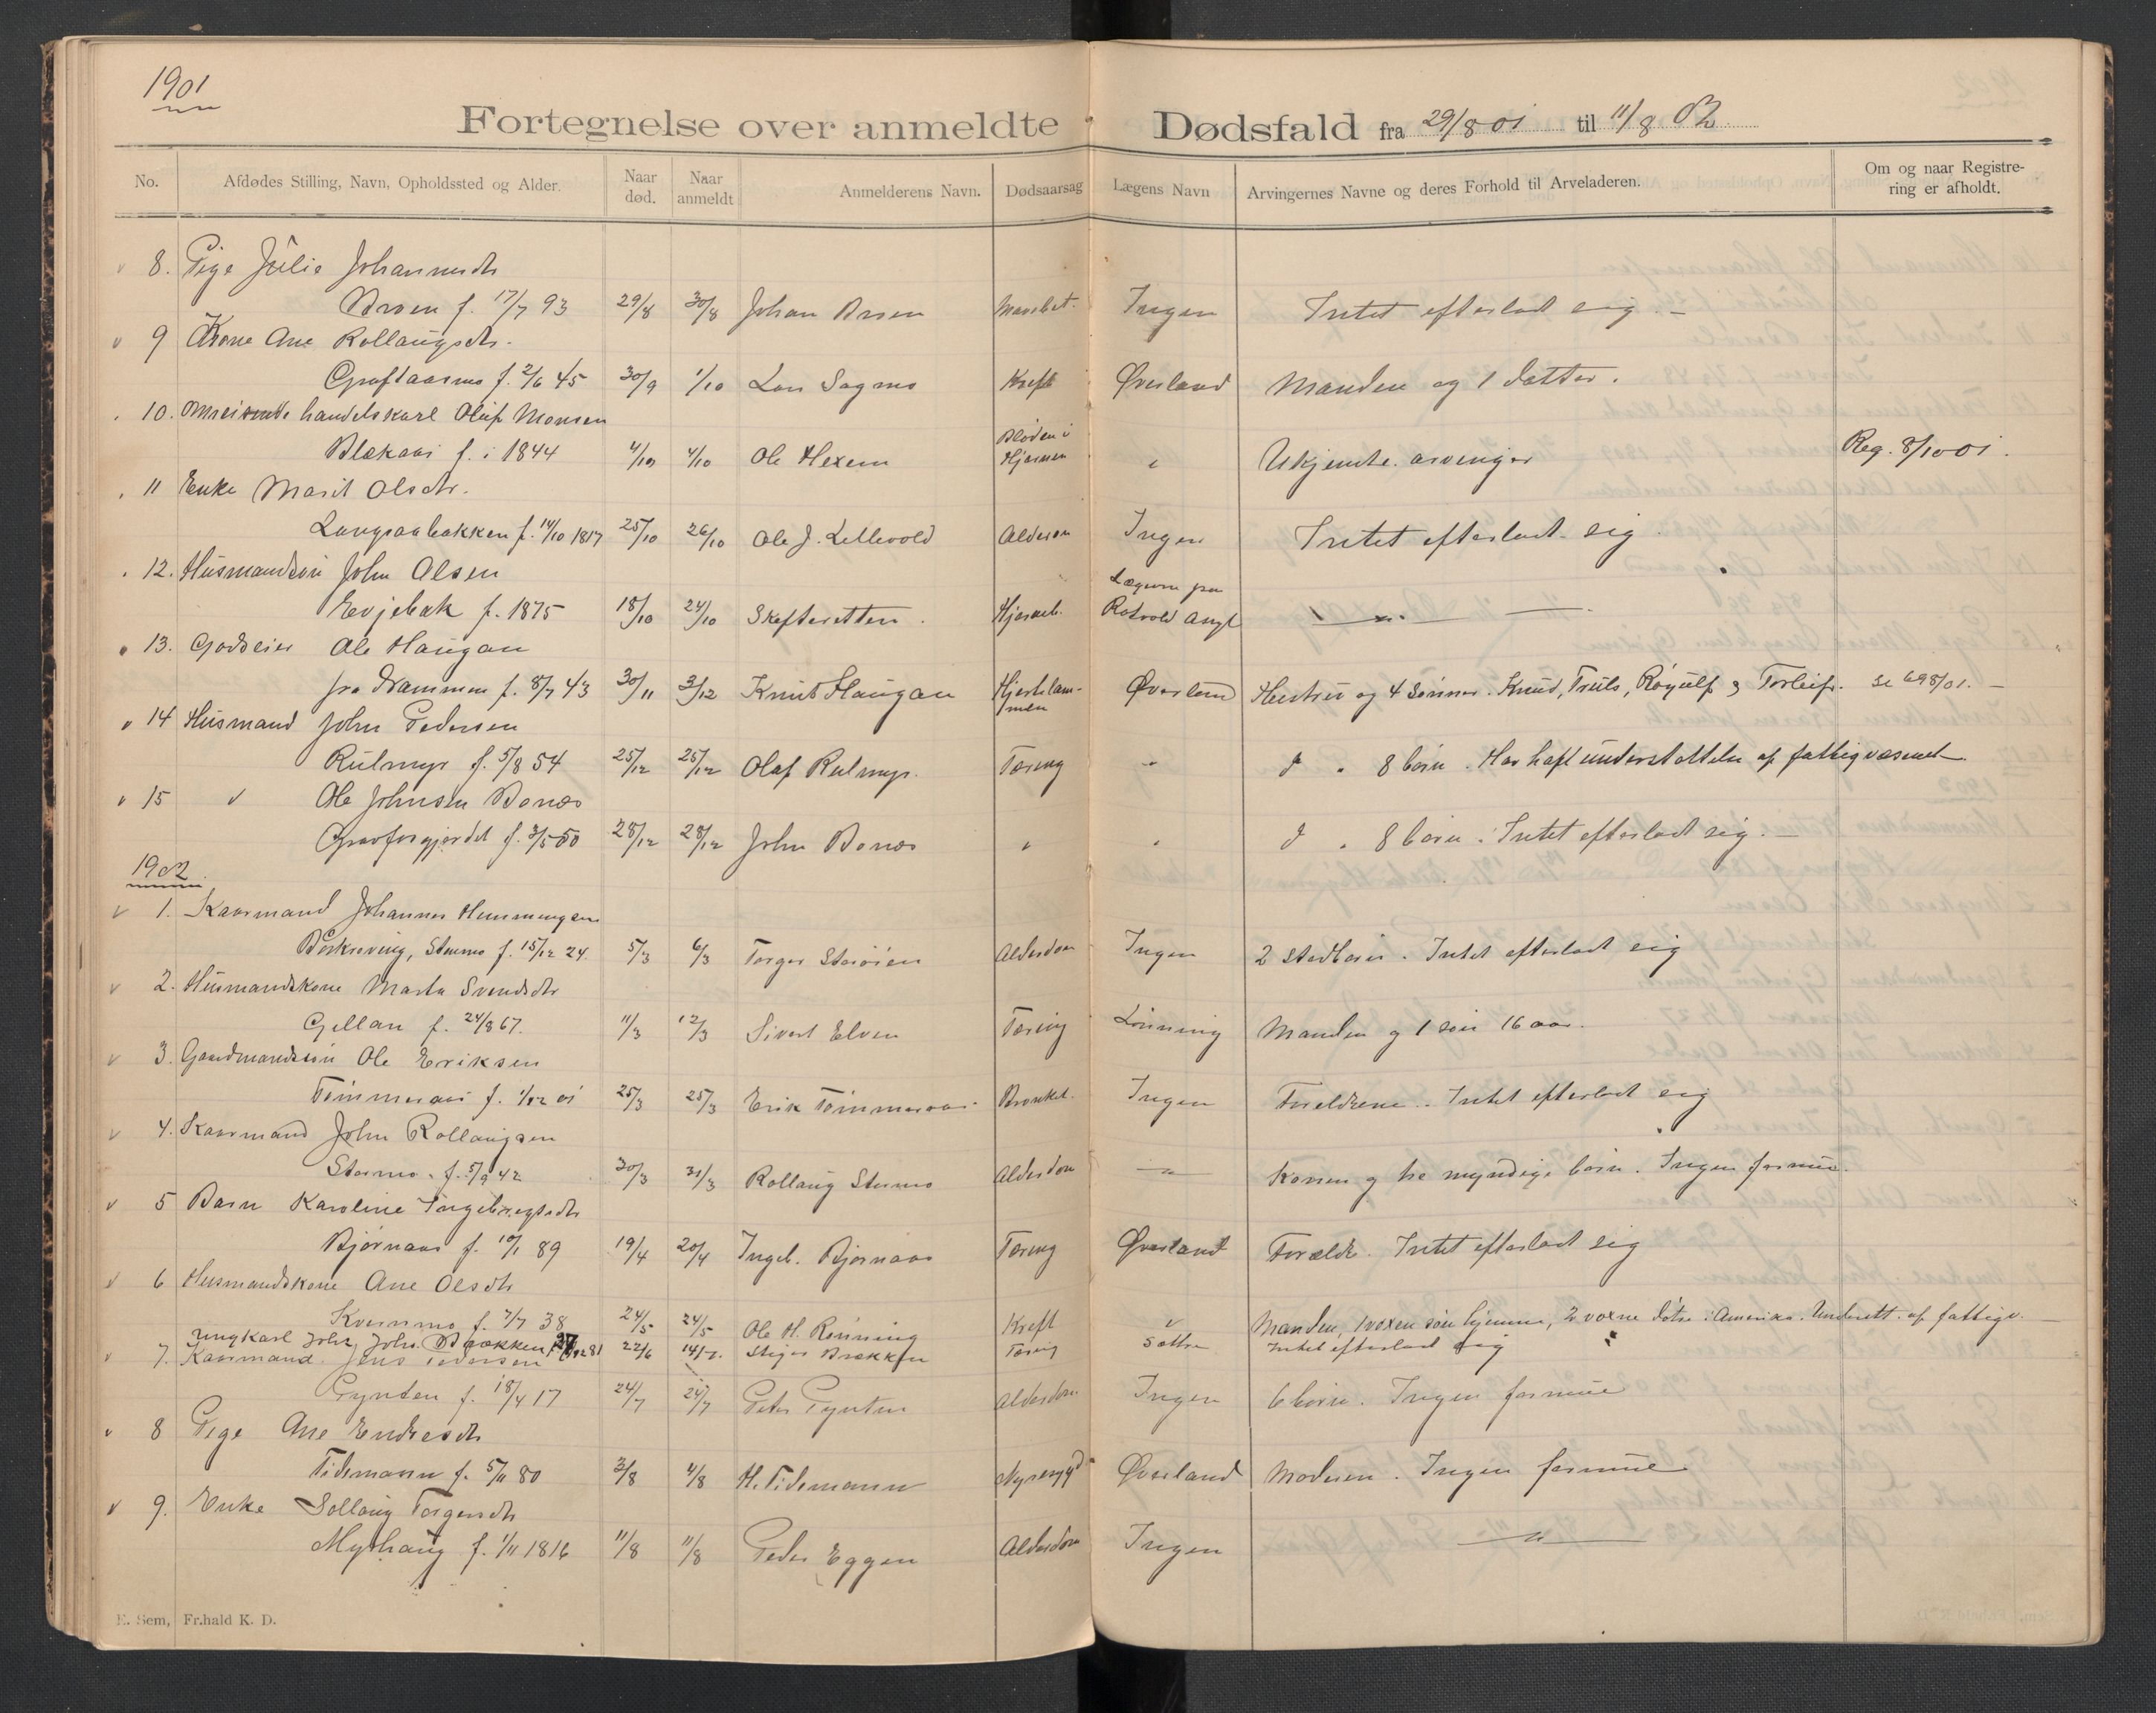 1901
Fortegnelse over anmeldte Dødsfald fra 29/8 01 til 11/8 02
No. Afdødes Stilling, Navn, Opholdssted og Alder. Naar død. Naar anmeldt Anmelderens Navn. Dødsaarsag Lægens Navn Arvingernes Navne og deres Forhold til Arveladeren. Om og naar Registrering er afholdt.
8. Pige Julie Johannesdtr
Broen f. 17/7 93 29/8 30/8 Johan Broen Ingen Intet efterladt sig.
9 Kone Ane Rollaugsdtr.
Grøftaasmo f. 2/6 45 30/9 1/10 Lars Sagmo Kreft Øverland Manden og 1 datter.
10. Omreisende handelskarl Oluf Monsen
Blekaas f. i 1844 4/10 4/10 Ole Hexem Bløden i Hjernen " Ukjendte arvinger Reg. 8/10 01.
11 Enke Marit Olsdtr.
Langsaabakken f. 14/10 1817 25/10 26/10 Ole J. Lillevold Alderdom Ingen Intet efterladt sig
12. Husmandsøn John Olsen
Evjebak f. 1875 18/10 24/10 Skifteretten. Hjerneb. Lægerne paa Rotvold Asyl — " —
13. Godseier Ole Haugan
fra Drammen f. 8/7 43 30/11 3/12 Knut Haugan Hjertelammen Øverland Hustru og 4 Sønner. Knud, Truls, Røyulf og Torleif. se 698/01. —
14 Husmand John Pedersen
Rulmyr f. 5/8 54 25/12 25/12 Olaf Rulmyr. Tæring " d " 8 børn. Har haft understøttelse af fattigvæsenet
15 " Ole Johnsen Bonæs
Gravforgjerdet f. 3/5 50 28/12 28/12 John Bonæs " " d " 8 børn. Intet efterladt sig. —
1902
1. Kaarmand Johannes Hemmingsen
Stormo f. 15/12 24. 5/3 6/3 Torger Storøien Alderdom Ingen 2 stedbørn. Intet efterladt sig
2. Husmandskone Marta Svendsdtr
Gellan f. 24/8 67. 11/3 12/3 Sivert Elven Tæring Lønning Manden og 1 søn 16 aar.
3. Gaardmandssøn Ole Eriksen
Tømmeraas f. 1/12 01 25/3 25/3 Erik Tømmeraas. Bronkit. Ingen Forældrene. Intet efterladt sig
4. Kaarmand John Rollaugsen
Stormo. f. 5/9 42 30/3 31/3 Rollaug Stormo Alderdom — " — Konen og tre myndige børn. Ingen formue.
5 Barn Karoline Ingebrigtsdtr
Bjørnaas f. 10/1 89 19/4 20/4 Ingeb. Bjørnaas Tæring Øverland Forældr. Intet efterladt sig
6 Husmandskone Ane Olsdtr
Kvernmo f. 7/7 38 24/5 24/5 Ole H. Rønning Kreft " Manden, 1 voxen søn hjemme, 2 voxne døtre i Amerika. Underst. af fattigv.
Ungkarl John Brækken 22/6 14/7. Brækken Tæring Sættre Intet efterladt sig
7. Kaarmand Jens Pedersen
Tynden f. 18/4 17 24/7 24/7 Peter Tynden Alderdom Ingen 6 børn. Ingen formue
8 Pige Ane Endresdtr
Tidemann f. 5/11 80 3/8 4/8 H. Tidemann Nyresygd Øverland Moderen. Ingen formue
9. Enke Sollaug Torgersdtr
Myrhaug f. 1/11 1816 11/8 11/8 Peder Eggen Alderdom Ingen — " —
E. Sem, Fr.hald K. D.